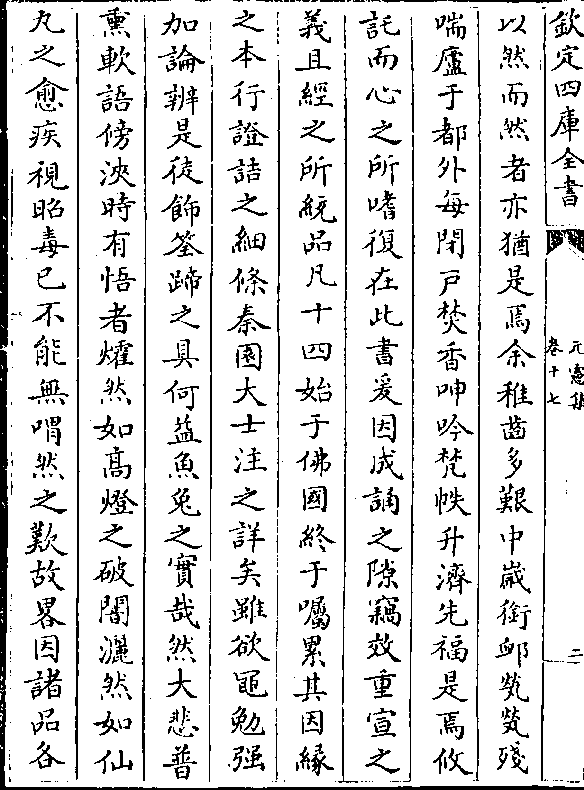 欽定四庫全書
元憲集
卷十七
二
以然而然者亦猶是焉余稚齒多艱中歲銜卹煢煢殘
喘廬于都外每閉戸焚香呻吟梵帙升濟先福是焉攸
託而心之所嗜復在此書爰因成誦之隙竊效重宣之
義且經之所統品凡十四始于佛國終于囑累其因縁
之本行證詰之細條秦園大士注之詳矣雖欲黽勉强
加論辨是徒飾筌蹄之具何益魚兔之實哉然大悲普
熏軟語傍浹時有悟者㸌然如髙燈之破闇灑然如仙
丸之愈疾視眙毒已不能無喟然之歎故畧因諸品各